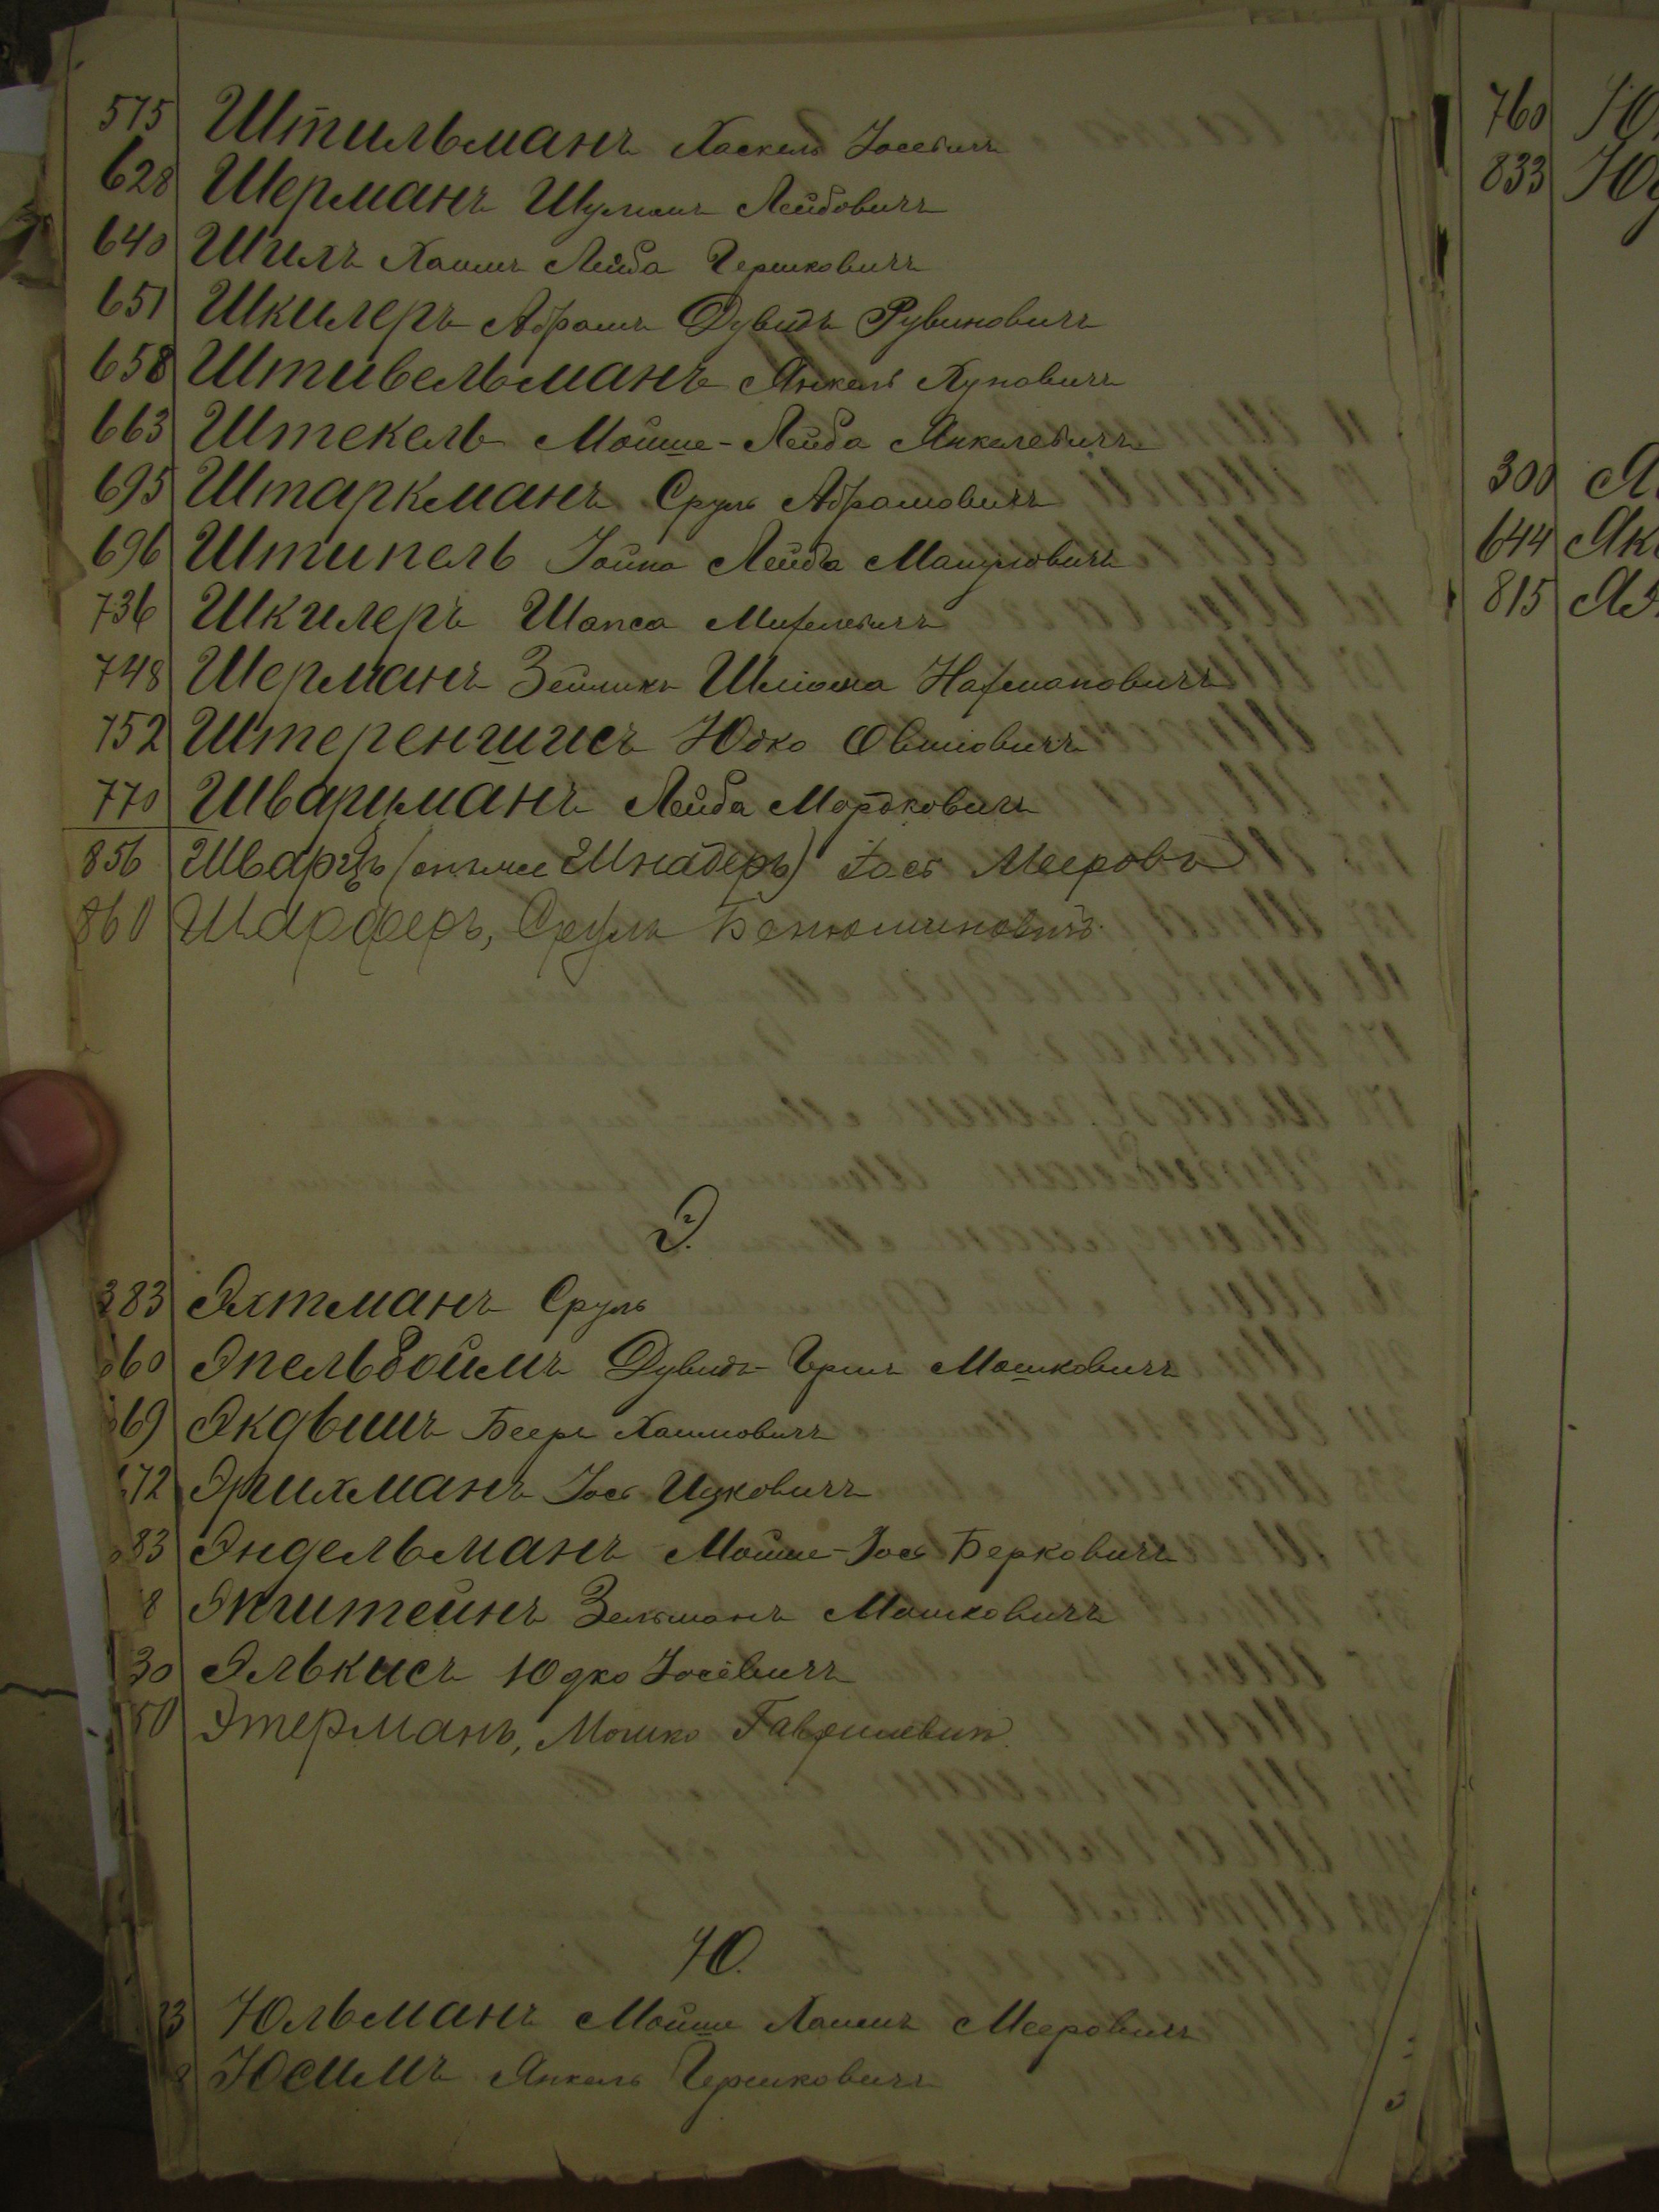 575 Штильманъ Хаскель Іосевичъ
628 Шерманъ Шулимъ Лейбовичъ
640 Шилъ Хаимъ Лейба Гершковичъ
651 Шкилеръ Абрамъ Дувидъ Рувиновичъ
658 Штивельманъ Янкель Хуновичъ
663 Штекель Мойше-Лейба Янкелевичъ
695 Штаркманъ Сруль Абрамовичъ
696 Штипель Іойна Лейба
736 Шкилеръ Шапса
748 Шерманъ Зейликъ Шліома Нахмановичъ
752 Штереншисъ Юдко Овшіовичъ
770 Шварцманъ Лейба Мордковичъ
856 Шварцъ (онъ же Шнадеръ) Іось Мееровъ
860 Шарферъ, Сруль Бенюминовичъ.
Э.
383 Эхтманъ Сруль
60 Эпельбоймъ Дувидъ-Гершъ Мошковичъ
69 Бееръ Хаимовичъ
72 Эрлихманъ Іось Ицковичъ
83 Эндельманъ Мойше-Іось Берковичъ
8 Эпштейнъ Зельманъ Мошковичъ
30 Элькисъ Юдко Іосевичъ
50 Этерманъ, Мошко Гавриловичъ.
Ю.
3 Юльманъ Мойше Хаимъ Мееровичъ
8 Юсимъ Янкель Гершковичъ
760 Ю
833 Ю
300 Я
644 Як
815 Я